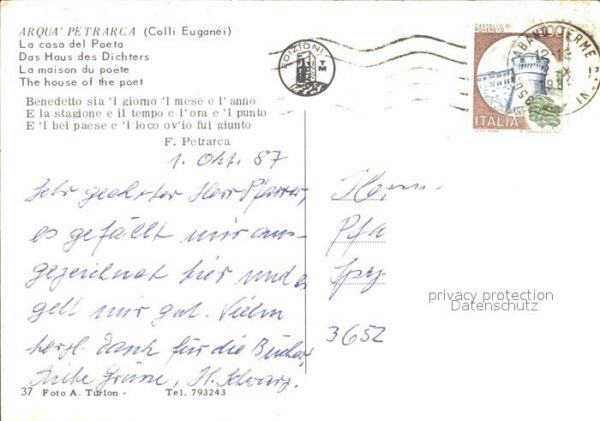 ARQUA' PETRARCA (Colli Euganei)
La casa del Poeta
Das Haus des Dichters
La maison du poète
The house of the poet
Benedetto sia 'l giorno 'l mese e l' anno
E la stagione e il tempo e l' ora e 'l punto
E 'l bel paese e 'l loco ov'io fui giunto
F. Petrarca
EDIZIONI
TM
CASTELLO DI
ROVERETO
ABANO TERME
ITALIA
1. Okt. 87
Sehr geehrter Herr Pfarrer,
es gefällt mir aus-
gezeichnet hier und es
geht mir gut. Vielen
herzl. Dank für die Bücher,
Liebe Grüsse, H. Schwarz.
Herrn
Pfa
3652
privacy protection
Datenschutz
37 Foto A. Turlon - Tel. 793243